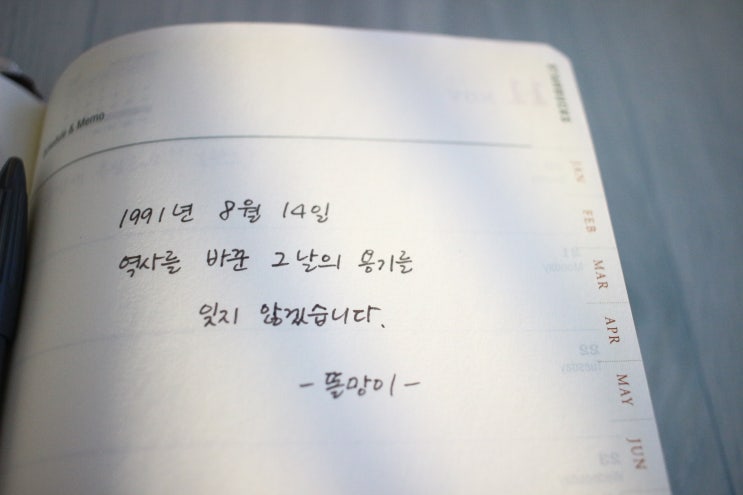 Schedule & Memo
1991년 8월 14일
역사를 바꾼 그날의 용기를
잊지 않겠습니다.
- 똘망이 -
JAN
FEB
MAR
APR
MAY
JUN
11 NOV
21
Monday
22
Tuesday
23
Wednesday